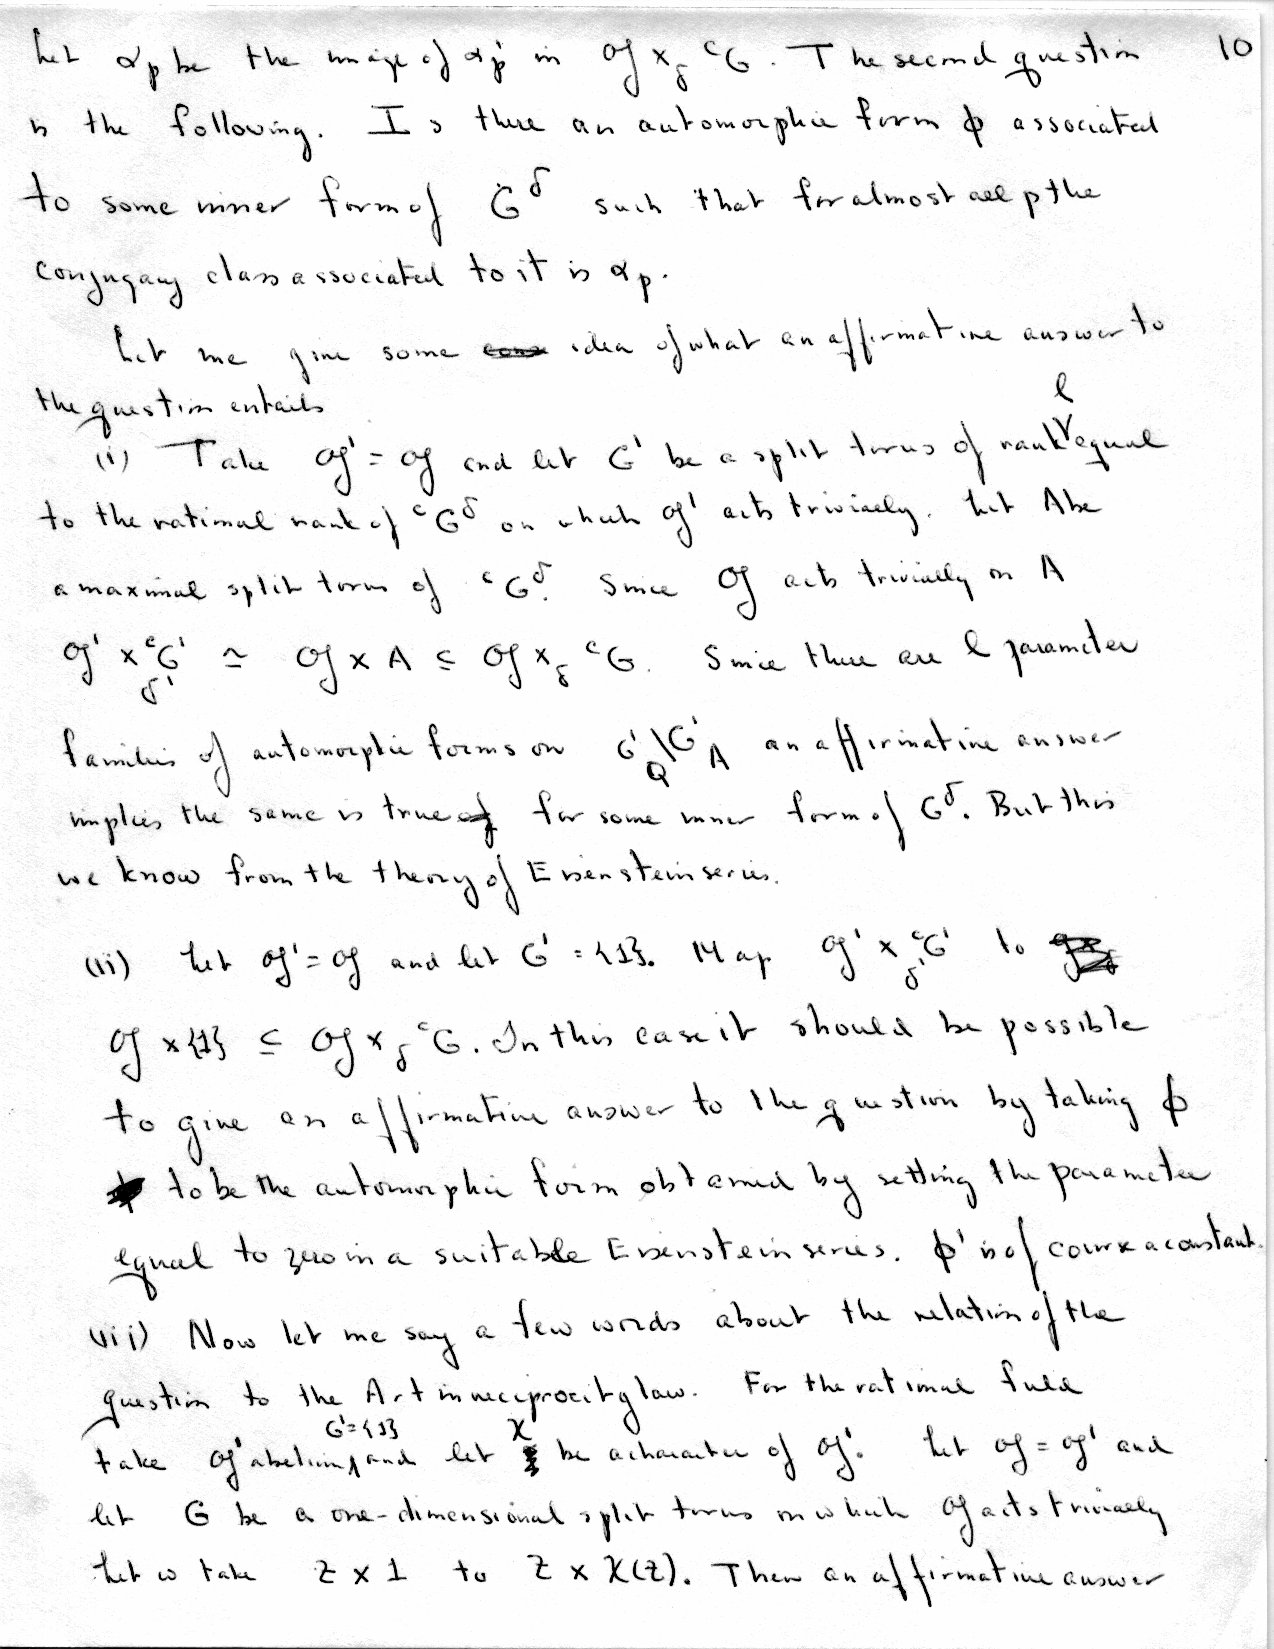 10
Let αp be the image of α'p in 𝔤 ×δ ᶜG. The second question
is the following. Is there an automorphic form φ associated
to some inner form of G̈^δ such that for almost all p the
conjugacy class associated to it is αp.
Let me give some idea of what an affirmative answer to
the question entails
(i) Take 𝔤' = 𝔤 and let G' be a split torus of rank l equal
to the rational rank of ᶜG^δ on which 𝔤' acts trivially. Let A be
a maximal split torus of ᶜG^δ. Since 𝔤 acts trivially on A
𝔤' ×δ' ᶜG' ≃ 𝔤 × A ⊆ 𝔤 ×δ ᶜG. Since there are l parameter
families of automorphic forms on G'Q\G'A an affirmative answer
implies the same is true for some inner form of G^δ. But this
we know from the theory of Eisenstein series.
(ii) Let 𝔤' = 𝔤 and let G' = {1}. Map 𝔤' ×δ' ᶜG' to
𝔤 × {1} ⊆ 𝔤 ×δ ᶜG. In this case it should be possible
to give an affirmative answer to the question by taking φ
to be the automorphic form obtained by setting the parameter
equal to zero in a suitable Eisenstein series. φ' is of course a constant.
(iii) Now let me say a few words about the relation of the
question to the Artin reciprocity law. For the rational field
take 𝔤' abelian, G' = {1} and let χ be a character of 𝔤'. Let 𝔤 = 𝔤' and
let G be a one-dimensional split torus on which 𝔤 acts trivially
Let ω take z × 1 to z × χ(z). Then an affirmative answer